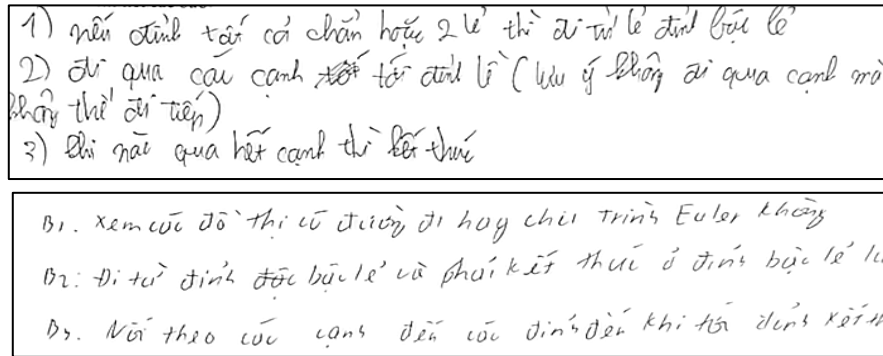 1) nếu đỉnh tất cả chẵn hoặc 2 lẻ thì đi từ lẻ đỉnh bậc lẻ
2) đi qua các cạnh tới đỉnh lẻ (lưu ý không đi qua cạnh mà
không thể đi tiếp)
3) Khi nào qua hết cạnh thì kết thúc
B1. Xem các đồ thị có đường đi hay chu trình Euler không
B2: Đi từ đỉnh bậc lẻ và phải kết thúc ở đỉnh bậc lẻ
B3. Nối theo các cạnh đến các đỉnh đến khi tới đỉnh kết